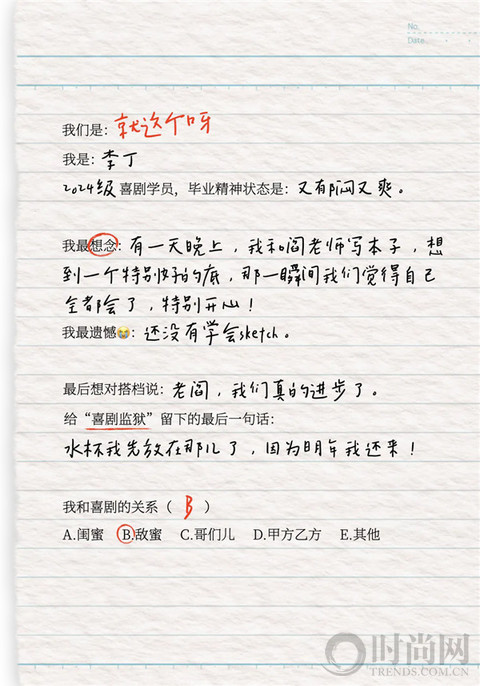 No.
Date.
我们是：就这个呀
我是：李丁
2024级喜剧学员，毕业精神状态是：又有闷又爽。
我最想念：有一天晚上，我和阎老师写本子，想
到一个特别好的底，那一瞬间我们觉得自己
全都会了，特别开心！
我最遗憾😭：还没有学会sketch。
最后想对搭档说：老阎，我们真的进步了。
给“喜剧监狱”留下的最后一句话：
水杯我先放在那儿了，因为明年我还来！
我和喜剧的关系（ B ）
A.闺蜜 B.敌蜜 C.哥们儿 D.甲方乙方 E.其他
时尚网
TRENDS.COM.CN